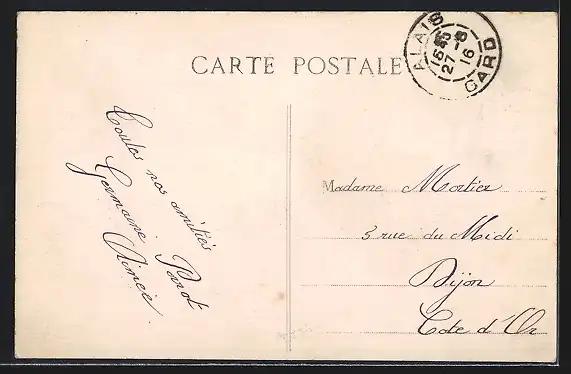 CARTE POSTALE
ALAIS
16 45
27 - 8
16
GARD
Toutes nos amitiés
Germaine Porot
Aimée
Madame Mortier
3 rue du Midi
Dijon
Cote d'Or